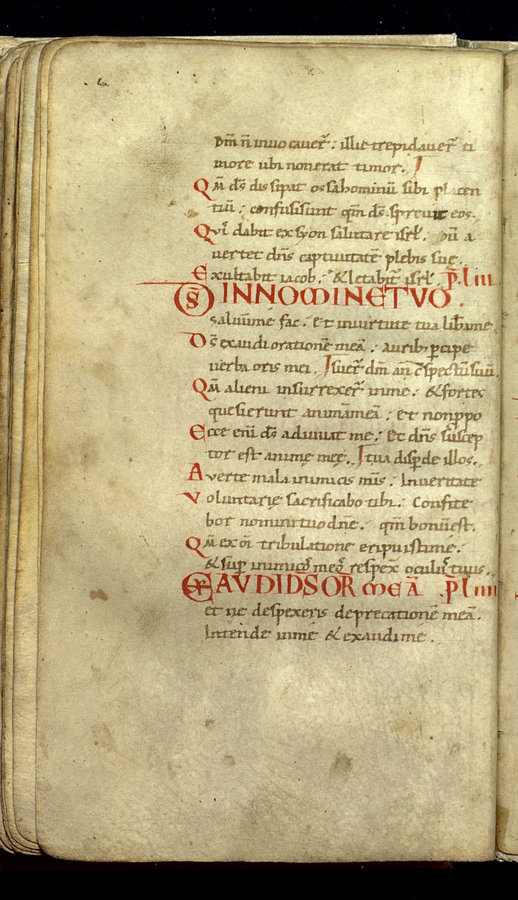 Dm̄ n̄ invocaver̄: illic trepidaver̄ ti
more ubi non erat timor.
Qm̄ ds̄ dissipat ossa hominū sibi placen
tiū: confusi sunt qm̄ ds̄ sprevit eos.
Qi dabit ex syon salutare isrl̄: cū a
vertet dn̄s captivitatē plebis sue.
Exultabit iacob: & letabit̄ isrl̄. P̄s liii
DS IN NOMINE TUO
salvū me fac: et in virtute tua libera me.
Ds̄ exaudi orationē meā: aurib; ꝑcipe
verba oris mei.
Qm̄ alieni insurrexer̄ in me: & fortes
quesierunt animā meā: et non ꝓpo
suer̄ dm̄ an̄ cspectū suū.
Ecce eni ds̄ adiuvat me: Et dn̄s suscep
tor est anime mee.
Averte mala inimicis mis: In veritate
tua disꝑde illos.
Voluntarie sacrificabo tibi: Confite
bor nomini tuo dn̄e: qm̄ bonū est.
Qm̄ ex oī tribulatione eripuisti me:
& suꝑ inimicos meos respex̄ oculus tuus.
EXAUDI DS OR MEĀ P̄s liiii
et ne despexeris deprecationē meā:
Intende in me & exaudi me.